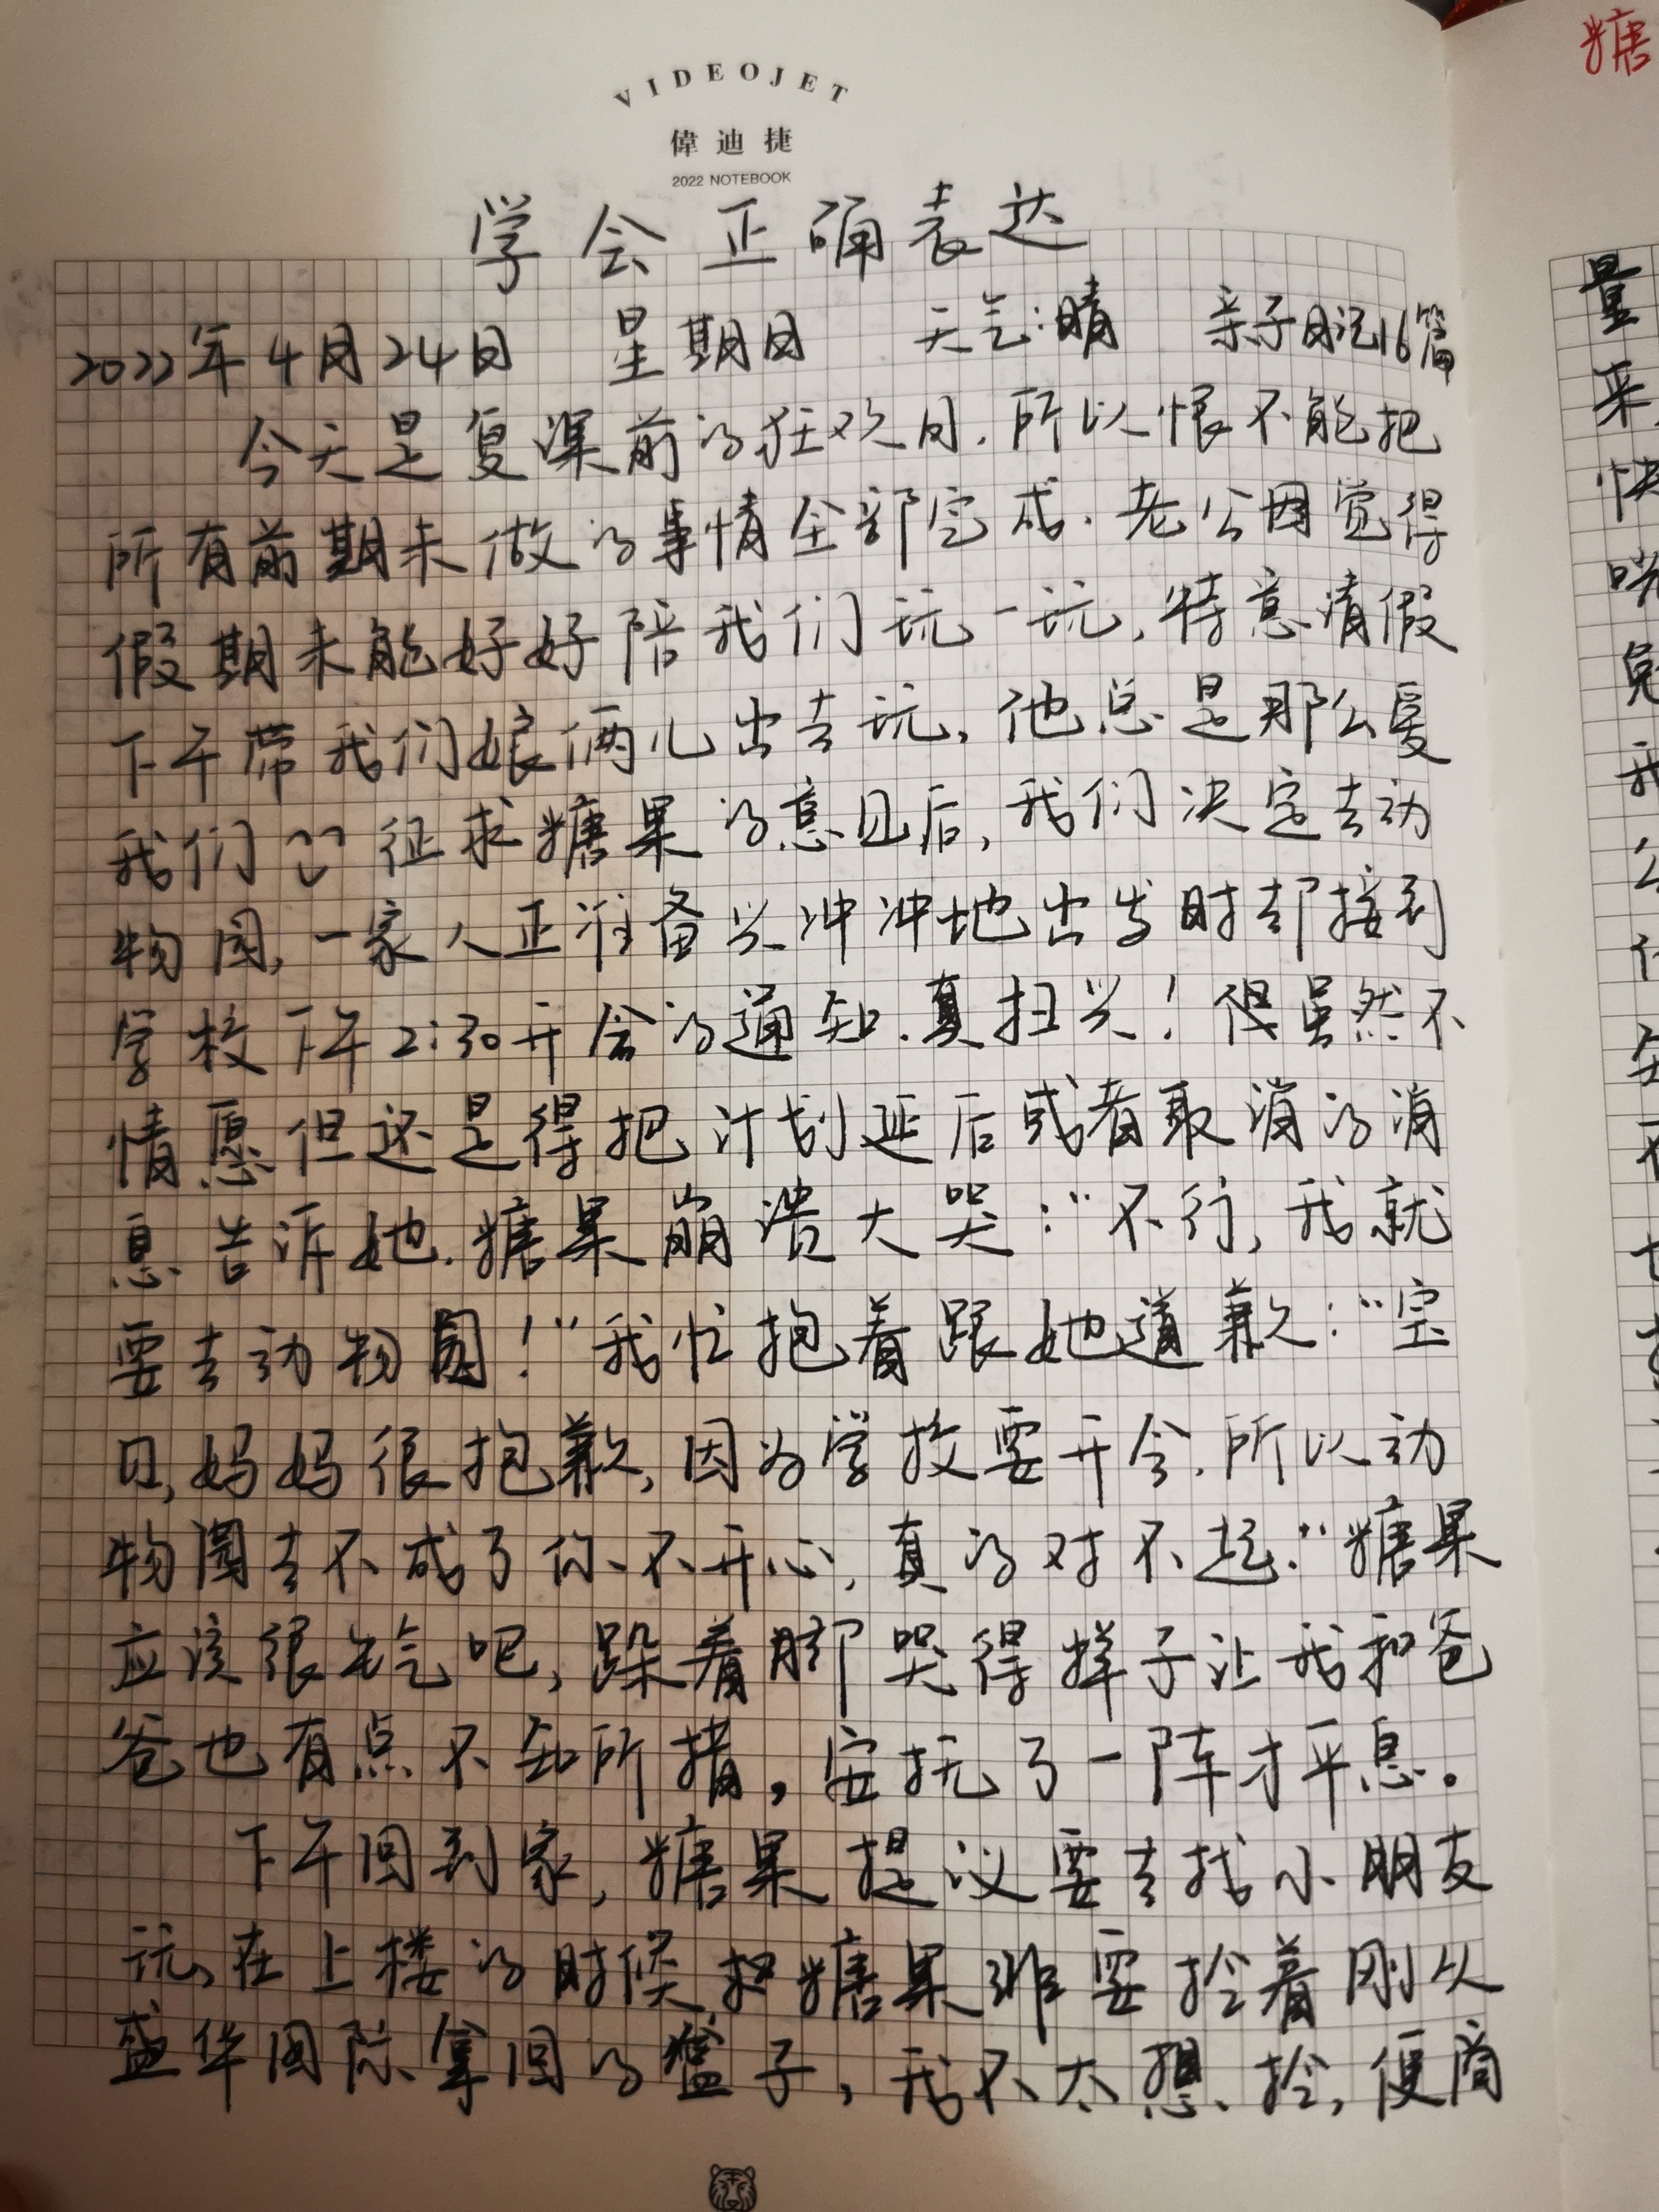 VIDEOJET
偉迪捷
2022 NOTEBOOK
糖
学会正确表达
2022年4月24日 星期日 天气:晴 亲子日记16篇
今天是复课前的狂欢日.所以恨不能把
所有前期未做的事情全部完成.老公因觉得
假期未能好好陪我们玩一玩,特意请假
下午带我们娘俩儿出去玩,他总是那么爱
我们 征求糖果的意见后,我们决定去动
物园,一家人正准备兴冲冲地出发时却接到
学校下午2:30开会的通知.真扫兴!但虽然不
情愿但还是得把计划延后或者取消的消
息告诉她.糖果崩溃大哭:“不行,我就
要去动物园!”我忙抱着跟她道歉:“宝
贝,妈妈很抱歉,因为学校要开会.所以动
物园去不成了你不开心,真的对不起.”糖果
应该很生气吧,跺着脚哭得样子让我和爸
爸也有点不知所措,安抚了一阵才平息。
下午回到家,糖果提议要去找小朋友
玩,在上楼的时候,糖果非要拎着刚从
盛华国际拿回的 子,我不太想拎,便商
量
采
快
兔
我
公